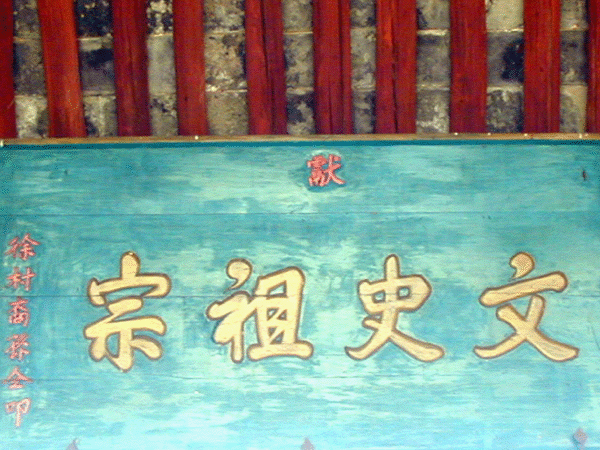 獻
文史祖宗
徐村裔孫仝叩